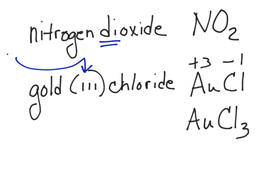 nitrogen dioxide NO2
+3 -1
gold (III) chloride AuCl
AuCl3